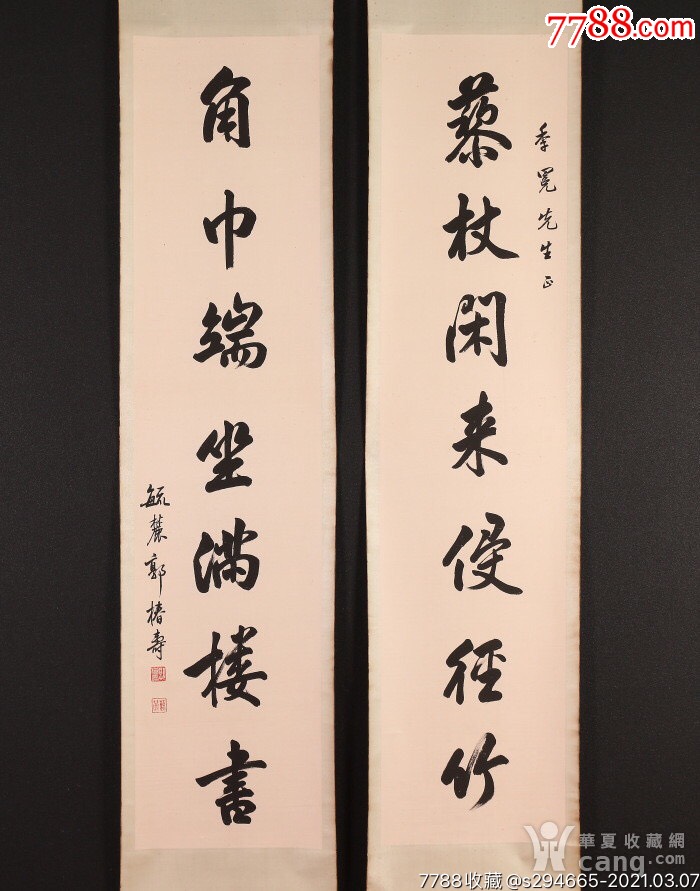 7788.com
季冕先生正
藜杖閑来侵徑竹
角巾端坐满楼書
毓麓郭椿寿
華夏收藏網
cang.com
7788收藏@s294665-2021.03.07